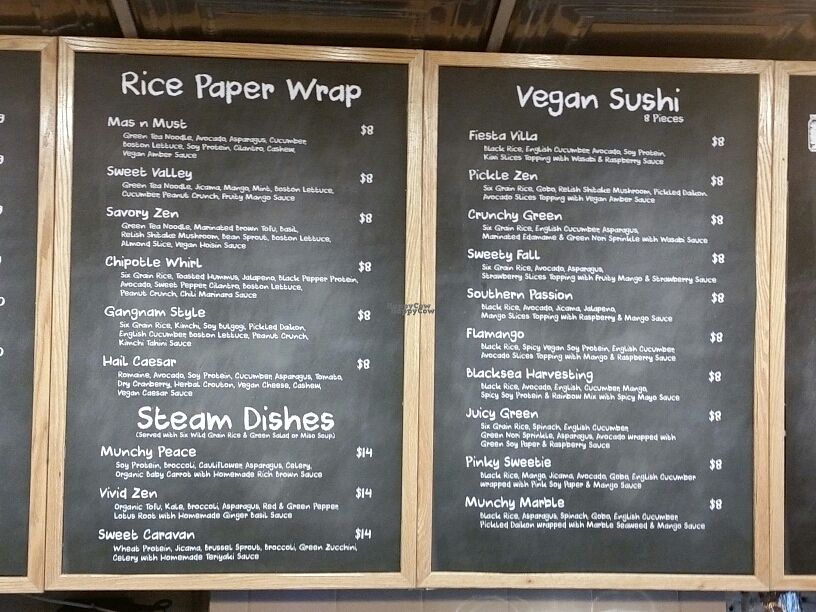 Rice Paper Wrap
Mas n Must $8
Green Tea Noodle, Avocado, Asparagus, Cucumber,
Boston Lettuce, Soy Protein, Cilantro, Cashew,
Vegan Amber Sauce
Sweet Valley $8
Green Tea Noodle, Jicama, Mango, Mint, Boston Lettuce,
Cucumber, Peanut Crunch, Fruity Mango Sauce
Savory Zen $8
Green Tea Noodle, Marinated Brown Tofu, Basil,
Relish Shitake Mushroom, Bean Sprout, Boston Lettuce,
Almond Slice, Vegan Hoisin Sauce
Chipotle Whirl $8
Six Grain Rice, Toasted Hummus, Jalapeno, Black Pepper Protein,
Avocado, Sweet Pepper, Cilantro, Boston Lettuce,
Peanut Crunch, Chili Marinara Sauce
Gangnam Style $8
Six Grain Rice, Kimchi, Soy Bulgogi, Pickled Daikon,
English Cucumber, Boston Lettuce, Peanut Crunch,
Kimchi Tahini Sauce
Hail Caesar $8
Romaine, Avocado, Soy Protein, Cucumber, Asparagus, Tomato,
Dry Cranberry, Herbal Crouton, Vegan Cheese, Cashew,
Vegan Caesar Sauce
Steam Dishes
(Served with Six Wild Grain Rice & Green Salad or Miso Soup)
Munchy Peace $14
Soy Protein, Broccoli, Cauliflower, Asparagus, Celery,
Organic Baby Carrot with Homemade Rich Brown Sauce
Vivid Zen $14
Organic Tofu, Kale, Broccoli, Asparagus, Red & Green Pepper,
Lotus Root with Homemade Ginger Basil Sauce
Sweet Caravan $14
Wheat Protein, Jicama, Brussel Sprout, Broccoli, Green Zucchini,
Celery with Homemade Teriyaki Sauce
Vegan Sushi
8 Pieces
Fiesta Villa $8
Black Rice, English Cucumber, Avocado, Soy Protein,
Kiwi Slices Topping with Wasabi & Raspberry Sauce
Pickle Zen $8
Six Grain Rice, Gobo, Relish Shitake Mushroom, Pickled Daikon,
Avocado Slices Topping with Vegan Amber Sauce
Crunchy Green $8
Six Grain Rice, English Cucumber, Asparagus,
Marinated Edamame & Green Nori Sprinkle with Wasabi Sauce
Sweety Fall $8
Six Grain Rice, Avocado, Asparagus,
Strawberry Slices Topping with Fruity Mango & Strawberry Sauce
Southern Passion $8
Black Rice, Avocado, Jicama, Jalapeno,
Mango Slices Topping with Raspberry & Mango Sauce
Flamango $8
Black Rice, Spicy Vegan Soy Protein, English Cucumber,
Avocado Slices Topping with Mango & Raspberry Sauce
Blacksea Harvesting $8
Black Rice, Avocado, English, Cucumber, Mango,
Spicy Soy Protein & Rainbow Mix with Spicy Mayo Sauce
Juicy Green $8
Six Grain Rice, Spinach, English Cucumber,
Green Nori Sprinkle, Asparagus, Avocado wrapped with
Green Soy Paper & Raspberry Sauce
Pinky Sweetie $8
Black Rice, Mango, Jicama, Avocado, Gobo, English Cucumber
wrapped with Pink Soy Paper & Mango Sauce
Munchy Marble $8
Black Rice, Asparagus, Spinach, Gobo, English Cucumber,
Pickled Daikon wrapped with Marble Seaweed & Mango Sauce
HappyCow